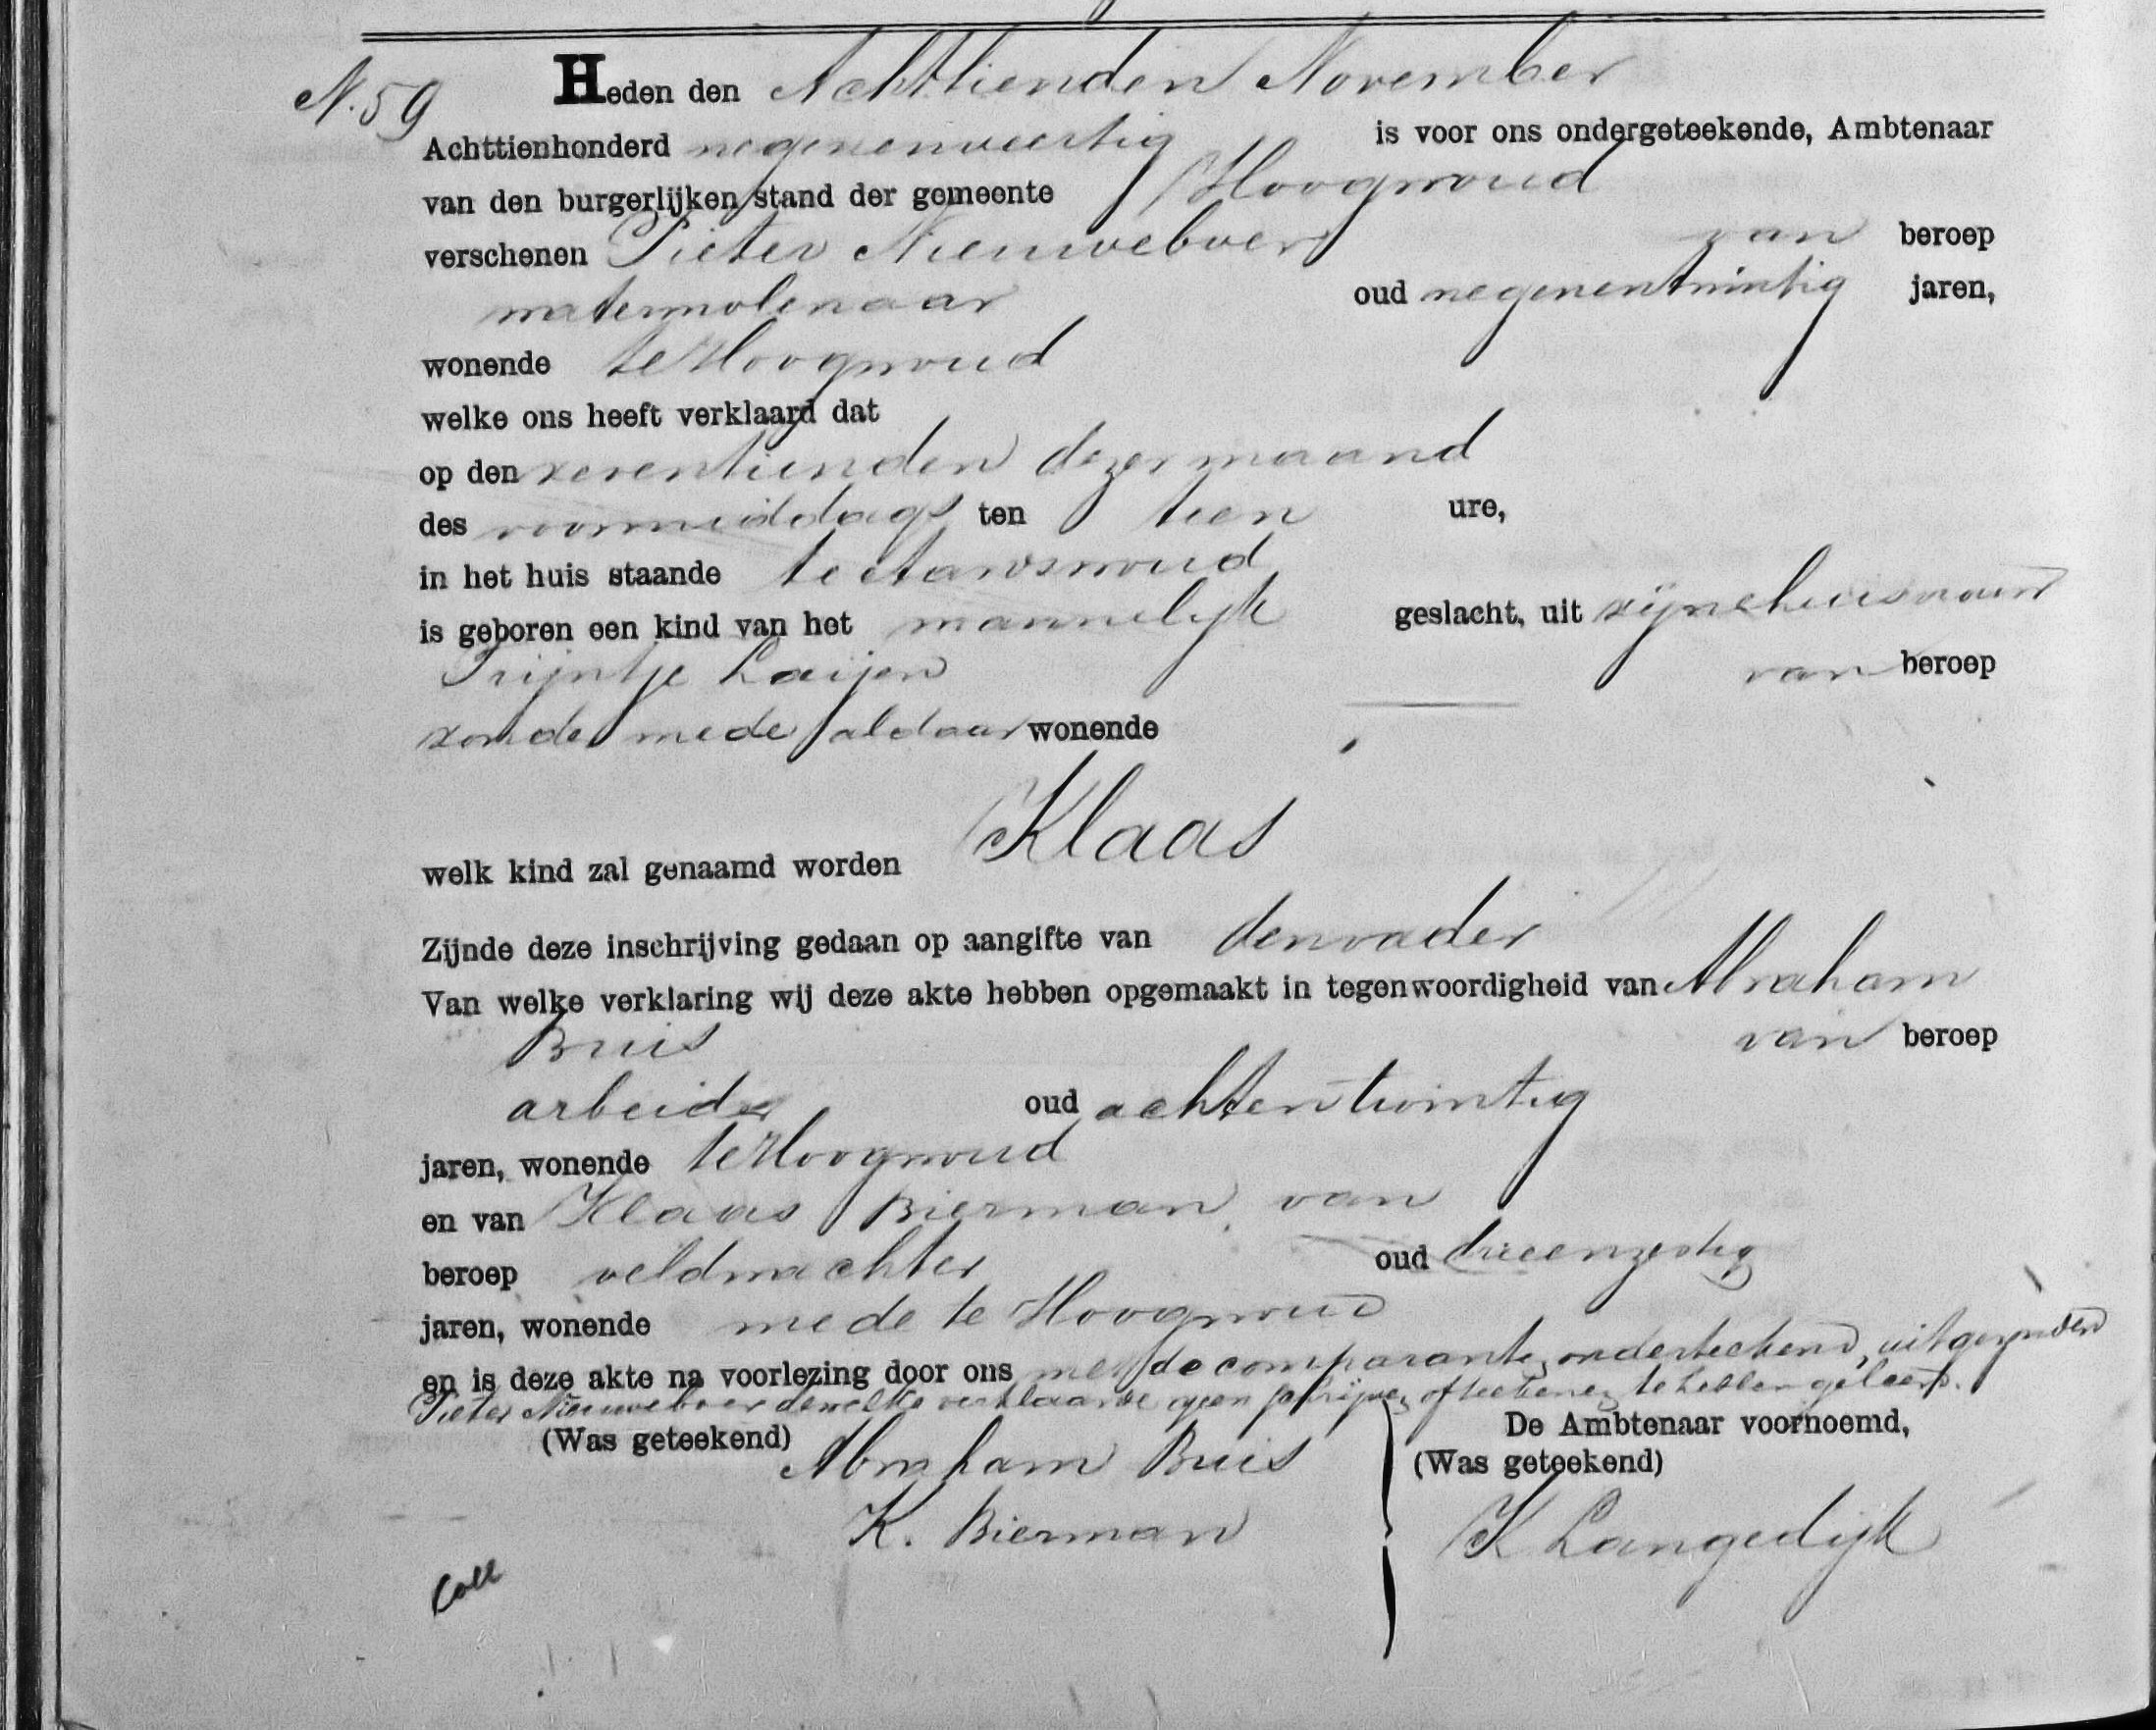 N. 59 Heden den Achttienden November
Achttienhonderd negenenveertig is voor ons ondergeteekende, Ambtenaar
van den burgerlijken stand der gemeente Hoogwoud
verschenen Pieter Nieuweboer van beroep
watermolenaar oud negenentwintig jaren,
wonende te Hoogwoud
welke ons heeft verklaard dat
op den zeventienden dezer maand
des voormiddags ten tien ure,
in het huis staande te Aartswoud
is geboren een kind van het mannelijk geslacht, uit zijne huisvrouw
Trijntje Laijen van beroep
zonder mede aldaar wonende
welk kind zal genaamd worden Klaas
Zijnde deze inschrijving gedaan op aangifte van den vader
Van welke verklaring wij deze akte hebben opgemaakt in tegenwoordigheid van Abraham
Buis van beroep
arbeider oud achtentwintig
jaren, wonende te Hoogwoud
en van Klaas Bierman van
beroep veldwachter oud drieenzestig
jaren, wonende mede te Hoogwoud
en is deze akte na voorlezing door ons met de comparanten onderteekend, uitgezonderd
Pieter Nieuweboer dewelke verklaarde geen schrijven of teekenen te hebben geleerd.
(Was geteekend) Abraham Buis
K. Bierman
De Ambtenaar voornoemd,
(Was geteekend)
K Langedijk
Coll